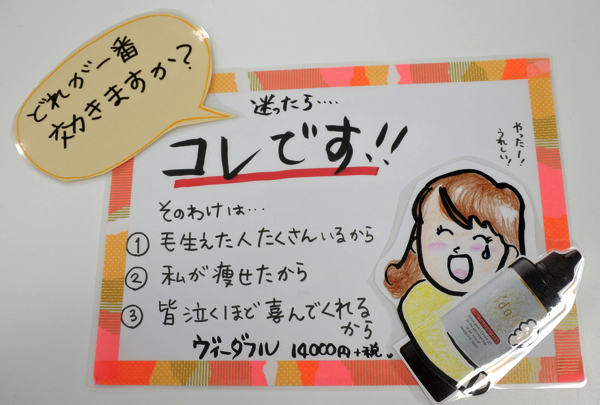 どれが一番
効きますか？
迷ったら‥‥
コレです!!
やったー！
うれしい！
そのわけは…
① 毛生えた人たくさんいるから
② 私が痩せたから
③ 皆泣くほど喜んでくれる
から
ヴィーダフル 14,000円+税。